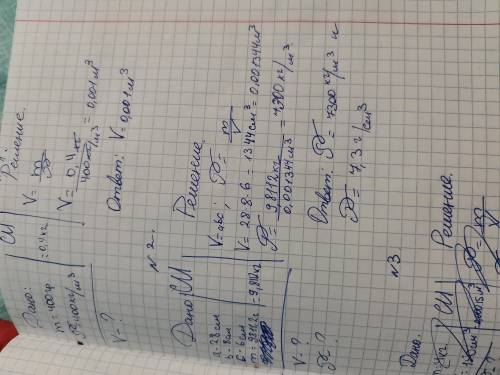 Дано:
m = 400г
ρ = 400 кг/м³
V - ?
СИ
= 0,4 кг
Решение.
V = m/ρ
V = 0,4 кг / 400 кг/м³ = 0,001 м³
Ответ: V = 0,001 м³
№ 2.
Дано:
a = 28 см
b = 8 см
c = 6 см
m = 9811,2 г
V - ?
ρ - ?
СИ
= 9,8112 кг
Решение.
V = abc; ρ = m/V
V = 28·8·6 = 1344 см³ = 0,001344 м³
ρ = 9,8112 кг / 0,001344 м³ = 7300 кг/м³
Ответ: ρ = 7300 кг/м³ и
ρ = 7,3 г/см³
№3
Дано:
СИ
Решение.
ρ = m/V